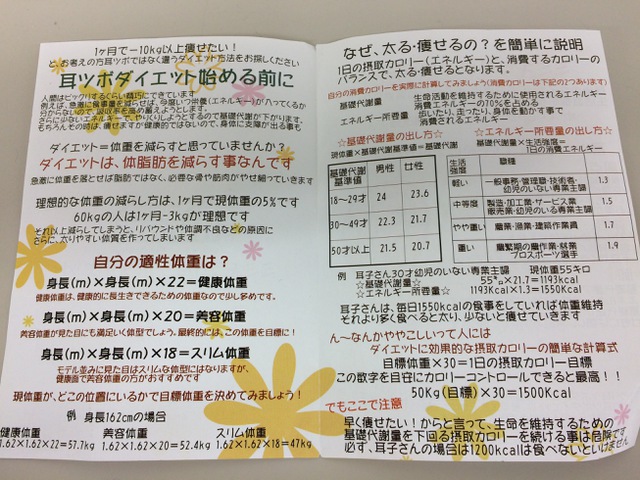 1ヶ月で−10kg以上痩せたい！
と、お考えの方耳ツボではなく違うダイエット方法をお探しください
耳ツボダイエット始める前に
人間はビックリするくらい精巧にできています
例えば、急激に食事量を減らせば、今度いつ栄養(エネルギー)が入ってくるか
分からないので、吸収率を始めようとします。
さらに、エネルギーで、やりくりしようとするので基礎代謝が下がります。
もちろんその時は、痩せますが健康的ではないので、身体に支障が出る事も
ダイエット＝体重を減らすと思っていませんか？
ダイエットは、体脂肪を減らす事なんです
急激に体重を落とせば脂肪ではなく、必要な骨や筋肉がやせ細っていきます
理想的な体重の減らし方は、1ヶ月で現体重の5％です
60kgの人は1ヶ月-3kgが理想です
それ以上減らしてしまうと、リバウンドや体調不良などの原因に
さらに、太りやすい体質を作ってしまいます
自分の適性体重は？
身長(m)×身長(m)×22＝健康体重
健康体重は、健康的に長生きできるための体重なので少し多めです。
身長(m)×身長(m)×20＝美容体重
美容体重が見た目にも満足いく体型でしょう。最終的には、この体重を目標に！
身長(m)×身長(m)×18＝スリム体重
モデル並みに見た目はスリムな体型にはなりますが、
健康面で美容体重の方がおすすめです
現体重が、どこの位置にいるかで目標体重を決めてみましょう！
例 身長162cmの場合
健康体重 美容体重 スリム体重
1.62×1.62×22＝57.7kg 1.62×1.62×20＝52.4kg 1.62×1.62×18＝47kg
なぜ、太る・痩せるの？を簡単に説明
1日の摂取カロリー(エネルギー)と、消費するカロリーの
バランスで、太る・痩せるとなります。
自分の消費カロリーを実際に計算してみましょう(消費カロリーは下記の2つあります)
基礎代謝量 生命活動を維持するために使用されるエネルギー
消費エネルギーの70%を占める
エネルギー所要量 歩いたり、走ったり、身体を動かす事で
消費されるエネルギー
☆基礎代謝量の出し方☆
現体重×基礎代謝基準値＝基礎代謝量
基礎代謝基準値 男性 女性
18〜29才 24 23.6
30〜49才 22.3 21.7
50才以上 21.5 20.7
☆エネルギー所要量の出し方☆
基礎代謝量×生活強度＝
1日の消費エネルギー
生活強度 職種
軽い 一般事務・管理職・技術者・幼児のいない専業主婦 1.3
中等度 製造・加工業・サービス業 販売業・幼児のいる専業主婦 1.5
やや重い 農業・漁業・建築作業員 1.7
重い 農繁期の農作業・林業 プロスポーツ選手 1.9
例 耳子さん30才幼児のいない専業主婦 現体重55キロ
☆基礎代謝量☆ 55㌔×21.7＝1193Kcal
☆エネルギー所要量☆ 1193Kcal×1.3＝1550Kcal
耳子さんは、毎日1550kcalの食事をしていれば体重維持
それより多く食べると太り、少ないと痩せていきます
ん〜なんかややこしいって人には
ダイエットに効果的な摂取カロリーの簡単な計算式
目標体重×30＝1日の摂取カロリー目標
この数字を目安にカロリーコントロールできると最高！！
50Kg(目標)×30＝1500Kcal
でもここで注意
早く痩せたい！からと言って、生命を維持するための
基礎代謝量を下回る摂取カロリーを続ける事は危険です
必ず、耳子さんの場合は1200kcalは食べないといけません